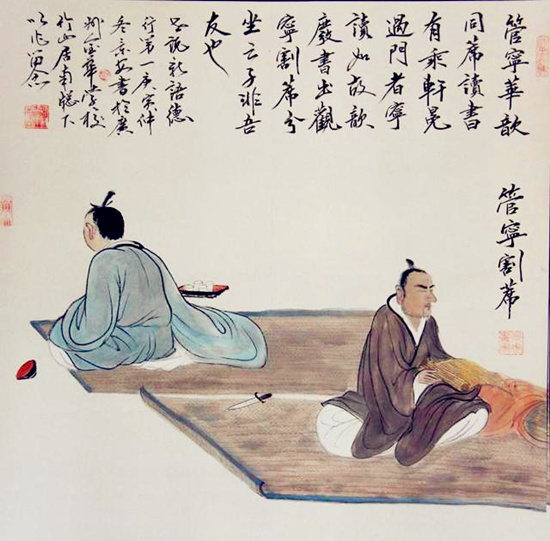 管寧華歆
同席讀書
有乘軒冕
過門者寧
讀如故歆
廢書出觀
寧割席分
坐云子非吾
友也
世說新語德
行第一庚寅仲
冬書於廣
州金華學校
竹山居南牕下
管寧割席